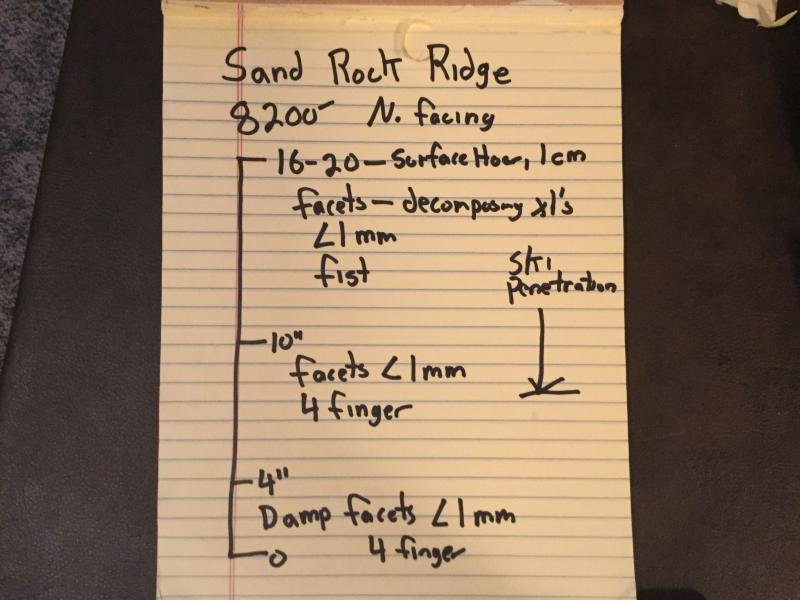 Sand Rock Ridge
8200' N. facing
16-20 - Surface Hoar, 1cm
facets - decomposing xl's
<1 mm
fist
Ski
Penetration
10"
facets <1mm
4 finger
4"
Damp facets <1mm
0 4 finger